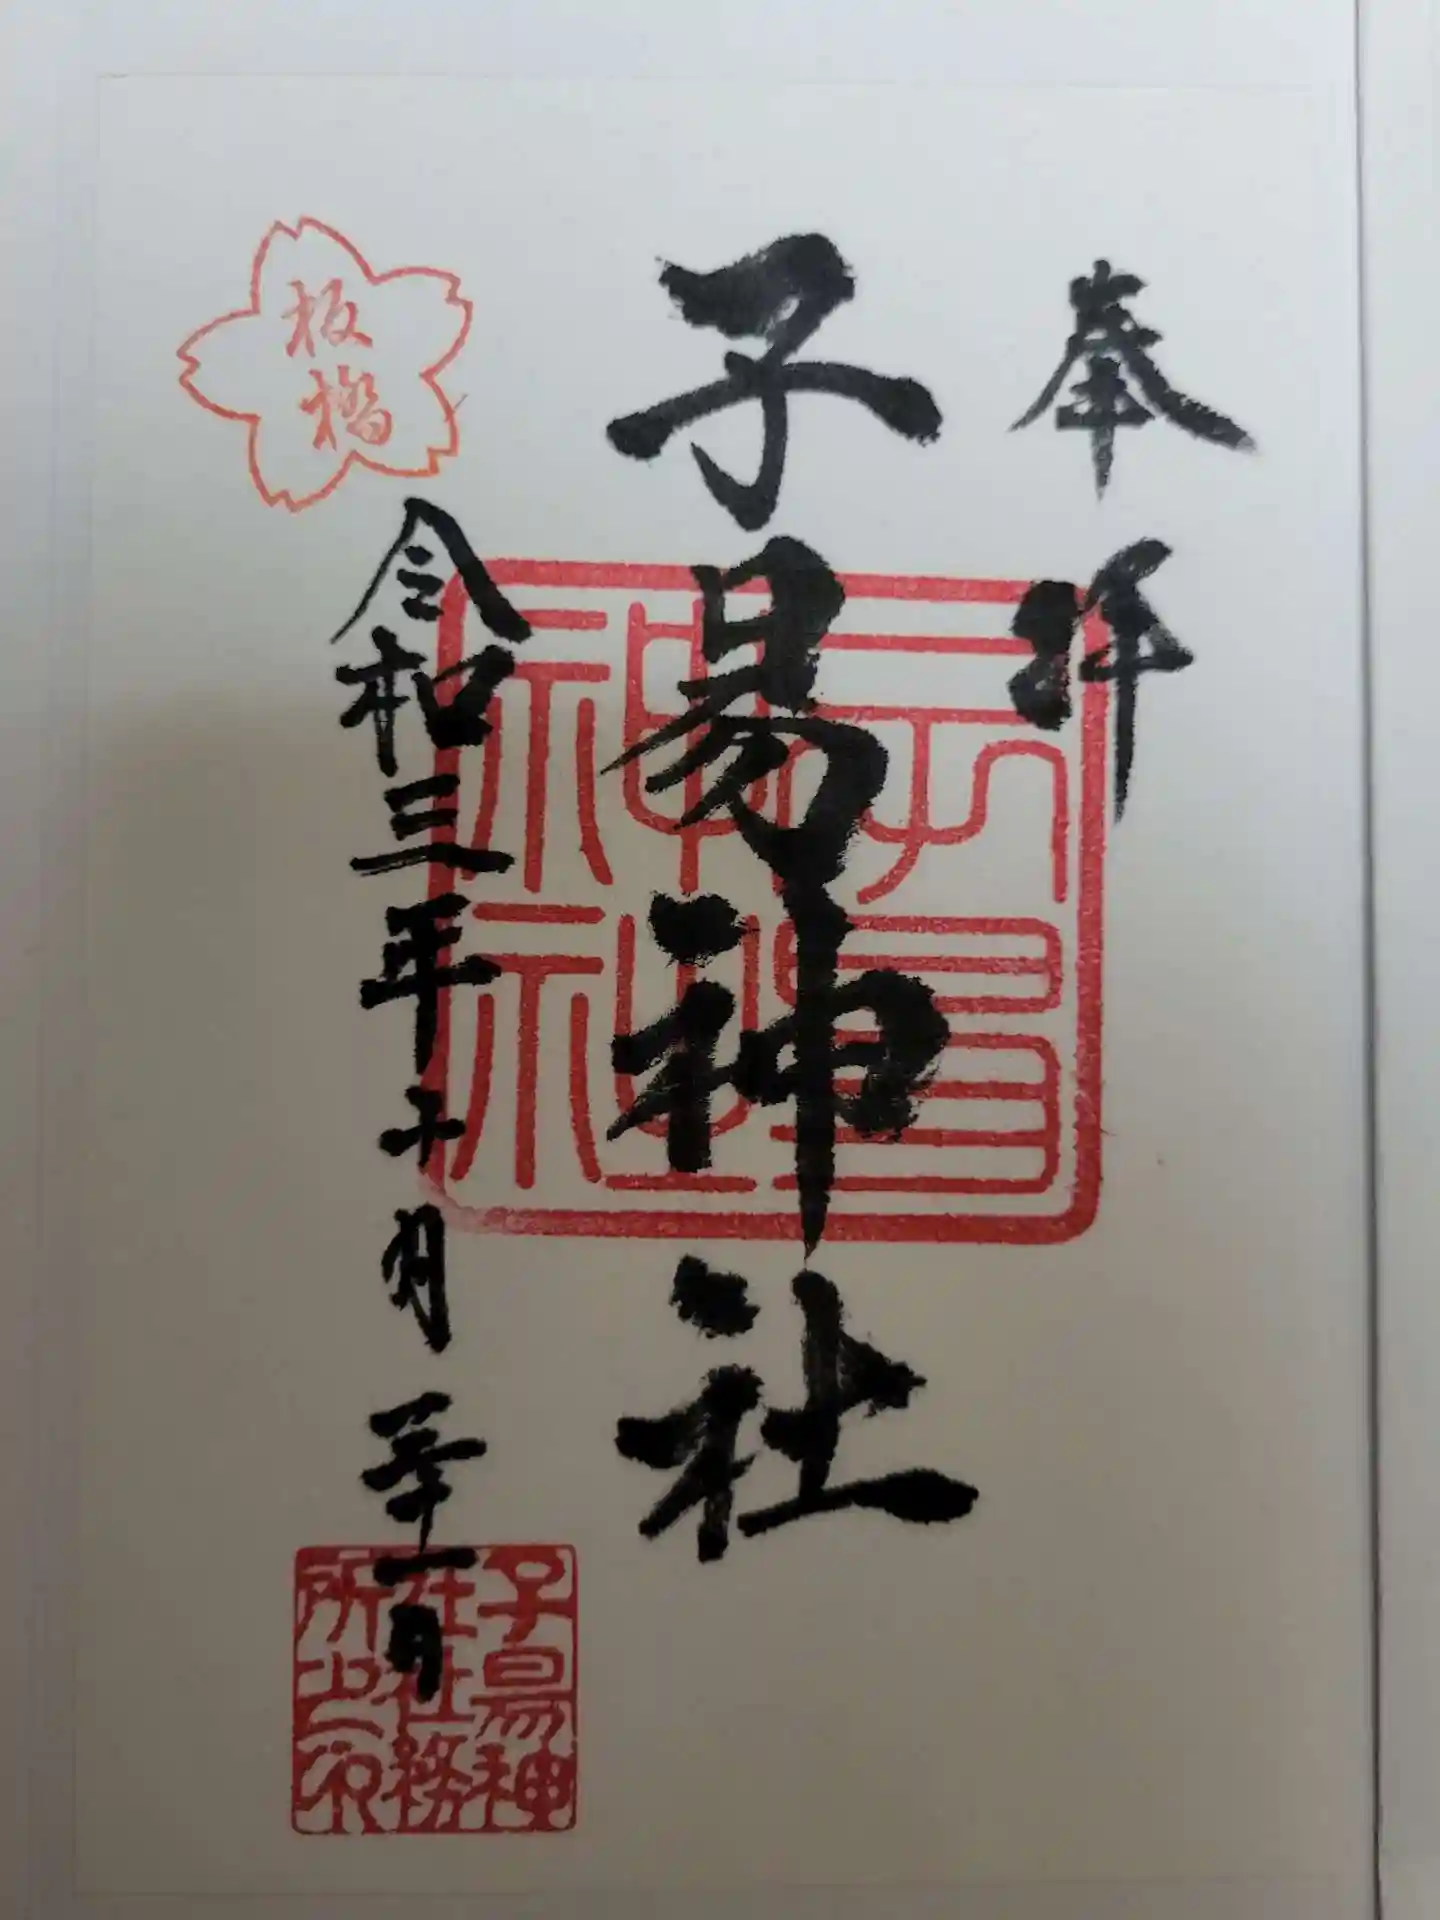 奉拝
子易神社
令和三年十月三十一日
板橋
子易神社
子易神
社社務
所之印